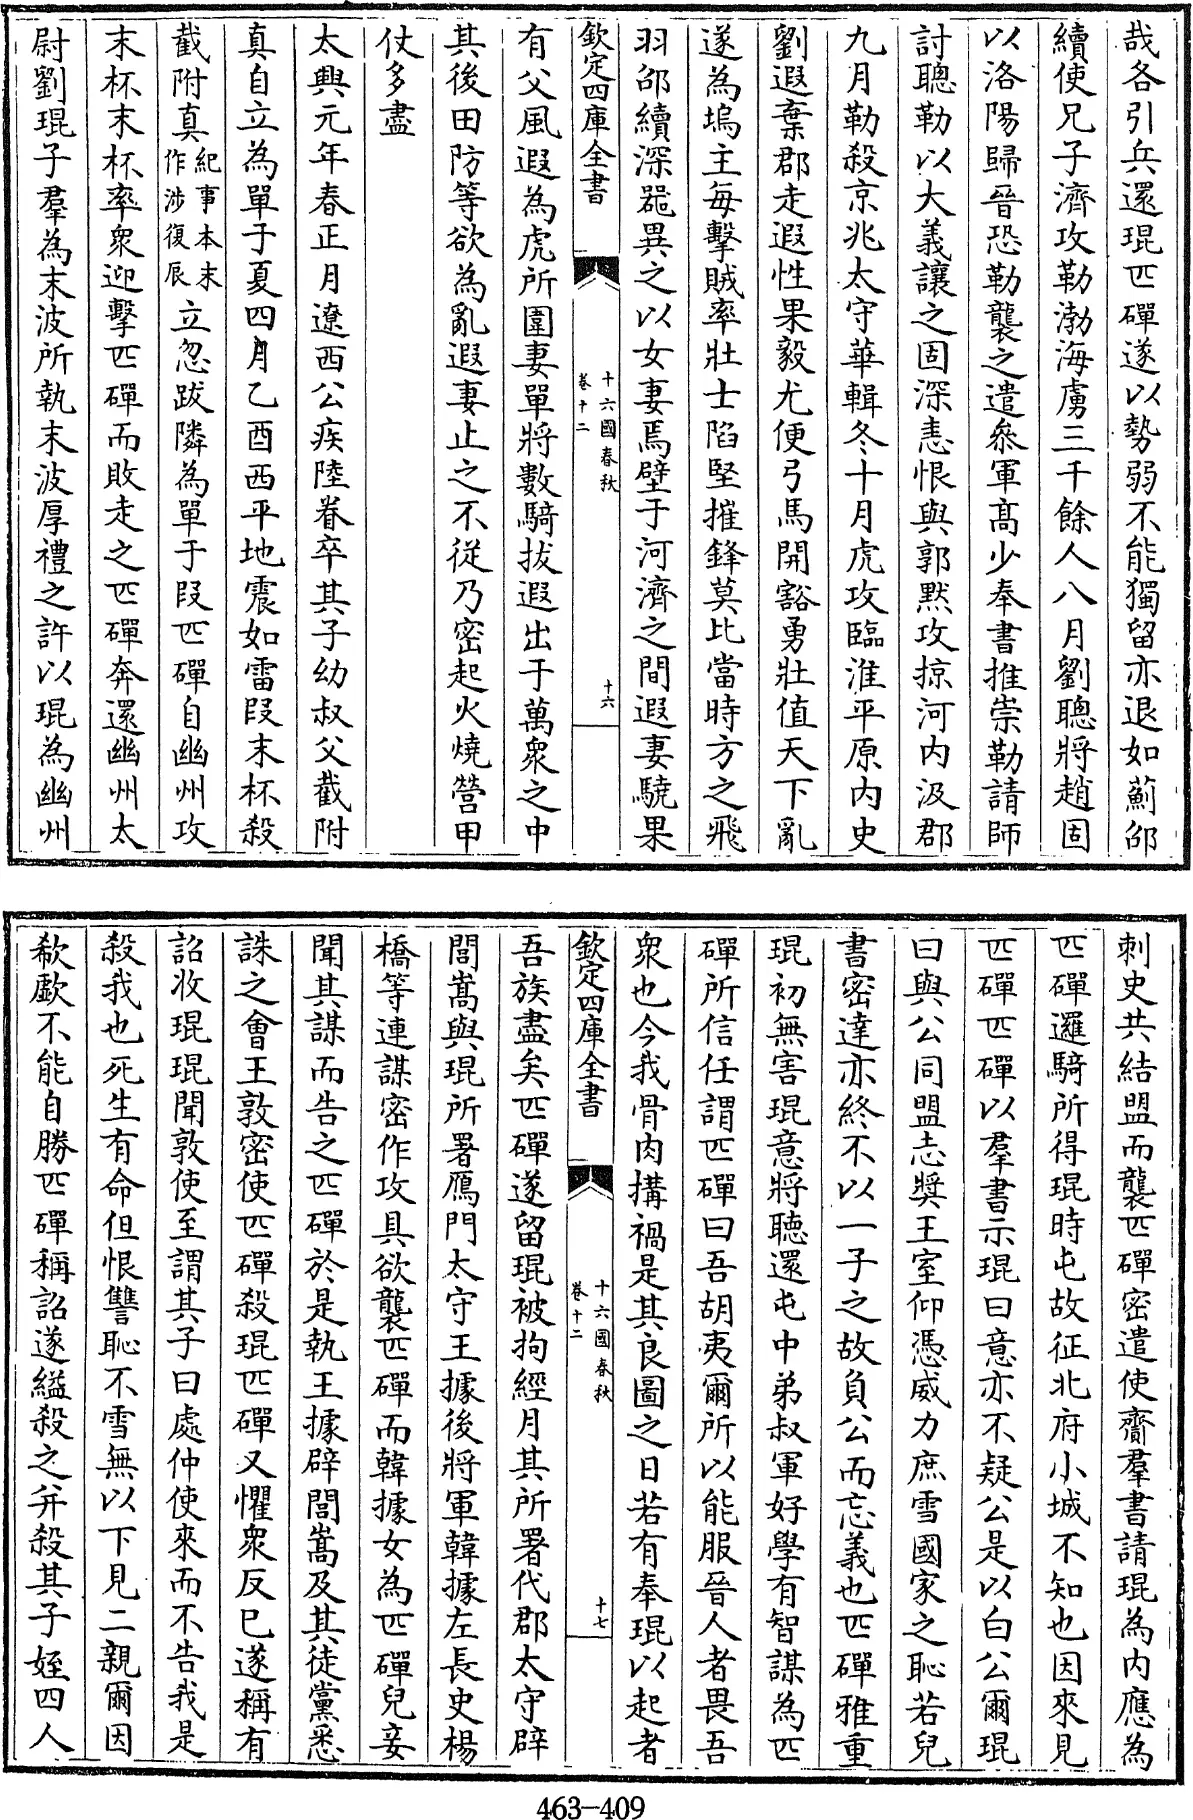 哉各引兵還琨匹磾遂以勢弱不能獨留亦退如薊邵
續使兄子濟攻勒渤海虜三千餘人八月劉聰將趙固
以洛陽歸晉恐勒襲之遣叅軍髙少奉書推崇勒請師
討聰勒以大義讓之固深恚恨與郭默攻掠河内汲郡
九月勒殺京兆太守華輯冬十月虎攻臨淮平原内史
劉遐棄郡走遐性果毅尤便弓馬開豁勇壯值天下亂
遂為塢主每擊賊率壯士陷堅摧鋒莫比當時方之飛
羽邵續深器異之以女妻焉壁于河濟之間遐妻驍果
欽定四庫全書
十六國春秋
卷十二
十六
有父風遐為虎所圍妻單將數騎拔遐出于萬衆之中
其後田防等欲為亂遐妻止之不從乃密起火燒營甲
仗多盡
太興元年春正月遼西公疾陸眷卒其子幼叔父截附
真自立為單于夏四月乙酉西平地震如雷叚末杯殺
截附真紀事本末作涉復辰立忽跋隣為單于叚匹磾自幽州攻
末杯末杯率衆迎擊匹磾而敗走之匹磾奔還幽州太
尉劉琨子羣為末波所執末波厚禮之許以琨為幽州
刺史共結盟而襲匹磾密遣使齎羣書請琨為内應為
匹磾邏騎所得琨時屯故征北府小城不知也因來見
匹磾匹磾以羣書示琨曰意亦不疑公是以白公爾琨
曰與公同盟志奬王室仰憑威力庶雪國家之恥若兒
書密達亦終不以一子之故負公而忘義也匹磾雅重
琨初無害琨意將聽還屯中弟叔軍好學有智謀為匹
磾所信任謂匹磾曰吾胡夷爾所以能服晉人者畏吾
衆也今我骨肉搆禍是其良圖之日若有奉琨以起者
欽定四庫全書
十六國春秋
卷十二
十七
吾族盡矣匹磾遂留琨被拘經月其所署代郡太守辟
閭嵩與琨所署鴈門太守王據後將軍韓據左長史楊
橋等連謀密作攻具欲襲匹磾而韓據女為匹磾兒妾
聞其謀而告之匹磾於是執王據辟閭嵩及其徒黨悉
誅之會王敦密使匹磾殺琨匹磾又懼衆反已遂稱有
詔收琨琨聞敦使至謂其子曰處仲使來而不告我是
殺我也死生有命但恨讐恥不雪無以下見二親爾因
欷歔不能自勝匹磾稱詔遂縊殺之并殺其子姪四人
463-409